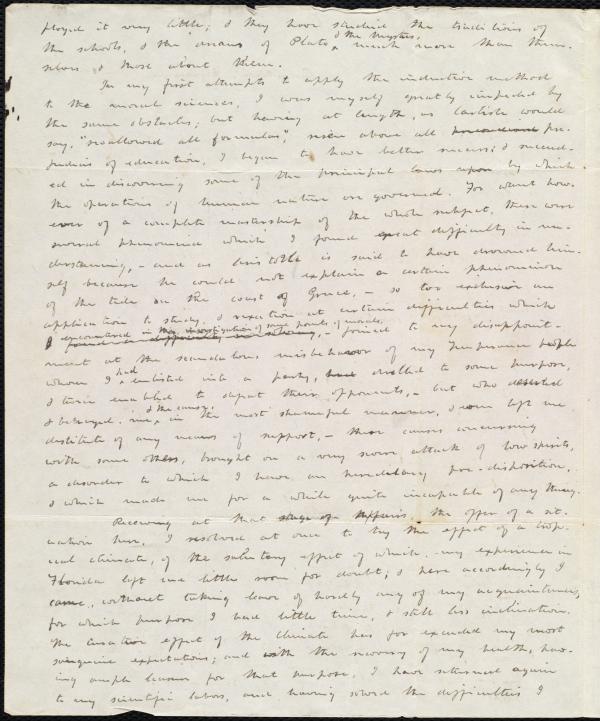 ployed it very little; & they have studied the traditions of
the schools, & the dreams of Plato & the Mystics, much more than them-
selves & those about them.
In my first attempts to apply the inductive method
to the moral sciences, I was myself greatly impeded by
the same obstacles; but having at length, as Carlisle would
say, "swallowed all formulas", risen above all pre-
judices of education, I began to have better success; & succeed-
ed in discovering some of the principal laws upon by which
the operations of human nature are governed. For want how-
ever of a complete mastership of the whole subject, there were
several phenomena which I found great difficulty in un-
derstanding, - and as Aristotle is said to have drowned him-
self because he could not explain a certain phenomenon
of the tide on the coast of Greece, - so too exclusive an
application to study, & vexation at certain difficulties which
I encountered in the investigation of some points of morals,
- joined to my disappoint-
ment at the scandalous misbehavor of my Temperance people
whom I had enlisted into a party, had drilled to some purpose,
& twice enabled to defeat their opponents, - but who deserted
& betrayed me, & the cause, in the most shameful manner, & even left me
destitute of any means of support, - these causes concurring
with some others, brought on a very severe attack of low spirits,
a disorder to which I have an hereditary pre-disposition,
& which made me for a while quite incapable of any thing.
Receiving at that stage of affairs the offer of a sit-
uation here, I resolved at once to try the effect of a trop-
ical climate, of the salutary effect of which my experience in
Florida left me little room for doubt; & here accordingly I
came, without taking leave of hardly any of my acquaintances,
for which purpose I had little time, & still less inclination.
The curative effect of the climate has far exceeded my most
sanguine expectations; and with the recovery of my health, hav-
ing ample leisure for that purpose, I have returned again
to my scientific labors, and having solved the difficulties I